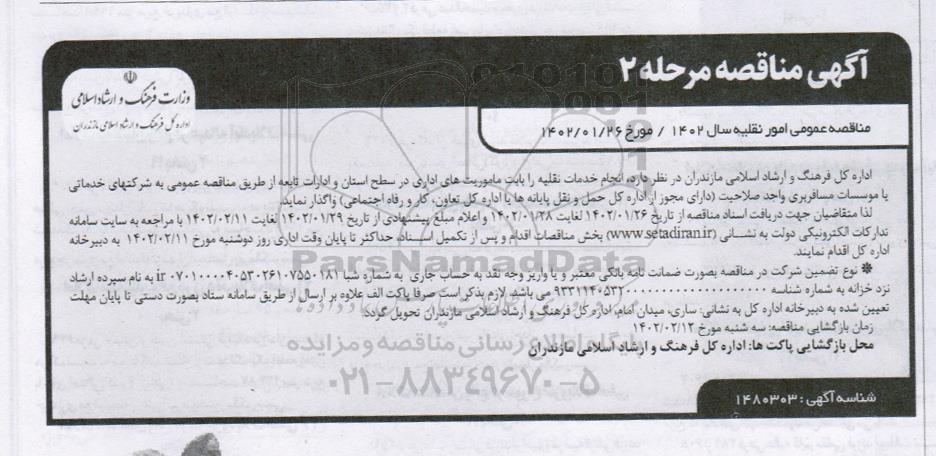 آگهی مناقصه مرحله ۲
وزارت فرهنگ و ارشاد اسلامی
اداره کل فرهنگ و ارشاد اسلامی مازندران
مناقصه عمومی امور نقلیه سال ۱۴۰۲ / مورخ ۱۴۰۲/۰۱/۲۶
اداره کل فرهنگ و ارشاد اسلامی مازندران در نظر دارد، انجام خدمات نقلیه را بابت ماموریت های اداری در سطح استان و ادارات تابعه از طریق مناقصه عمومی به شرکتهای خدماتی
یا موسسات مسافربری واجد صلاحیت (دارای مجوز از اداره کل حمل و نقل پایانه ها یا اداره کل تعاون، کار و رفاه اجتماعی) واگذار نماید.
لذا متقاضیان جهت دریافت اسناد مناقصه از تاریخ ۱۴۰۲/۰۱/۲۶ لغایت ۱۴۰۲/۰۱/۲۸ و اعلام مبلغ پیشنهادی از تاریخ ۱۴۰۲/۰۱/۲۹ لغایت ۱۴۰۲/۰۲/۱۱ با مراجعه به سایت سامانه
تدارکات الکترونیکی دولت به نشانی (www.setadiran.ir) بخش مناقصات اقدام و پس از تکمیل اسناد، حداکثر تا پایان وقت اداری روز دوشنبه مورخ ۱۴۰۲/۰۲/۱۱ به دبیرخانه
اداره کل اقدام نمایند.
※ نوع تضمین شرکت در مناقصه بصورت ضمانت نامه بانکی معتبر و یا واریز وجه نقد به حساب جاری به شماره شبا ir ۰۷۰۱۰۰۰۰۴۰۵۳۰۲۶۱۰۷۵۵۰۱۸۱ به نام سپرده ارشاد
نزد خزانه به شماره شناسه می باشد. لازم بذکر است صرفا پاکت الف علاوه بر ارسال از طریق سامانه ستاد بصورت دستی تا پایان مهلت
تعیین شده به دبیرخانه اداره کل به نشانی: ساری، میدان امام، اداره کل فرهنگ و ارشاد اسلامی مازندران تحویل گردد.
زمان بازگشایی مناقصه: سه شنبه مورخ ۱۴۰۲/۰۲/۱۲
محل بازگشایی پاکت ها: اداره کل فرهنگ و ارشاد اسلامی مازندران
شناسه آگهی: ۱۴۸۰۳۰۳
ParsNamadData
پایگاه اطلاع رسانی مناقصه و مزایده
۰۲۱-۸۸۳۴۹۶۷۰-۵